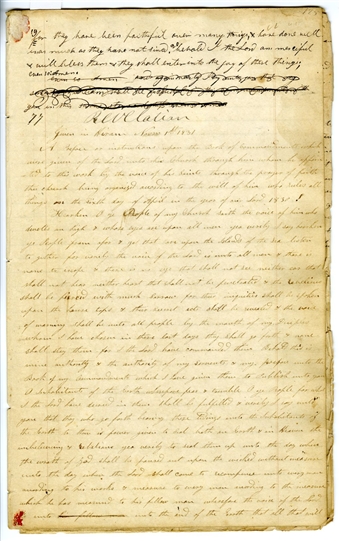 for they have been faithful over many things & have done well
in as much as they have not sined Behold I the Lord am merciful
& will bless them & they shall enter into the joy of these things
even so Amen
77 Revelation
given in Hiram Nov 1st 1831
A Preface or instructions upon the Book of Commandments which
were given of the Lord unto his Church through him whom he appointed
to this work by the voice of his Saints through the prayer of faith
this church being organized according to the will of him who rules all
things on the sixth day of April in the year of our Lord 1830
Hearken O ye People of my Church saith the voice of him who
dwells on high & whose eyes are upon all men yea verily I say hearken
ye People from afar & ye that are upon the Islands of the sea listen
together for verily the voice of the Lord is unto all men & there is
none to escape & there is no eye that shall not see neither ear that
shall not hear neither heart that shall not be penetrated & the rebellious
shall be pierced with much sorrow for their iniquities shall be spoken
upon the house tops & their secret acts shall be revealed & the voice
of warning shall be unto all people by the mouth of my Disciples
whom I have chosen in these last days & they shall go forth & none
shall stay them for I the Lord have commanded them Behold this is
mine authority & the authority of my servants & my Preface unto the
Book of my Commandments which I have given them to Publish unto you
O inhabitants of the Earth wherefore fear & tremble O ye People for what
I the Lord have decreed in them shall be fulfilled & verily I say unto
you that they who go forth bearing these tidings unto the inhabitants of
the Earth to them is power given to seal both on Earth & in Heaven the
unbelieving & rebelious yea verily to seal them up unto the day when
the wrath of God shall be poured out upon the wicked without measure
unto the day when the Lord shall come to recompence unto every man
according to his works & measure to every man according to the measure
which he has measured to his fellow man wherefore the voice of the Lord
is unto the end of the Earth that all that will